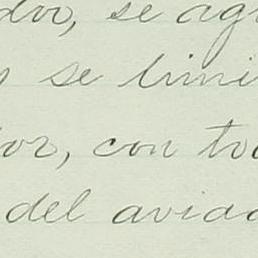 do, se ag
s se limi
or, con to
del aviad